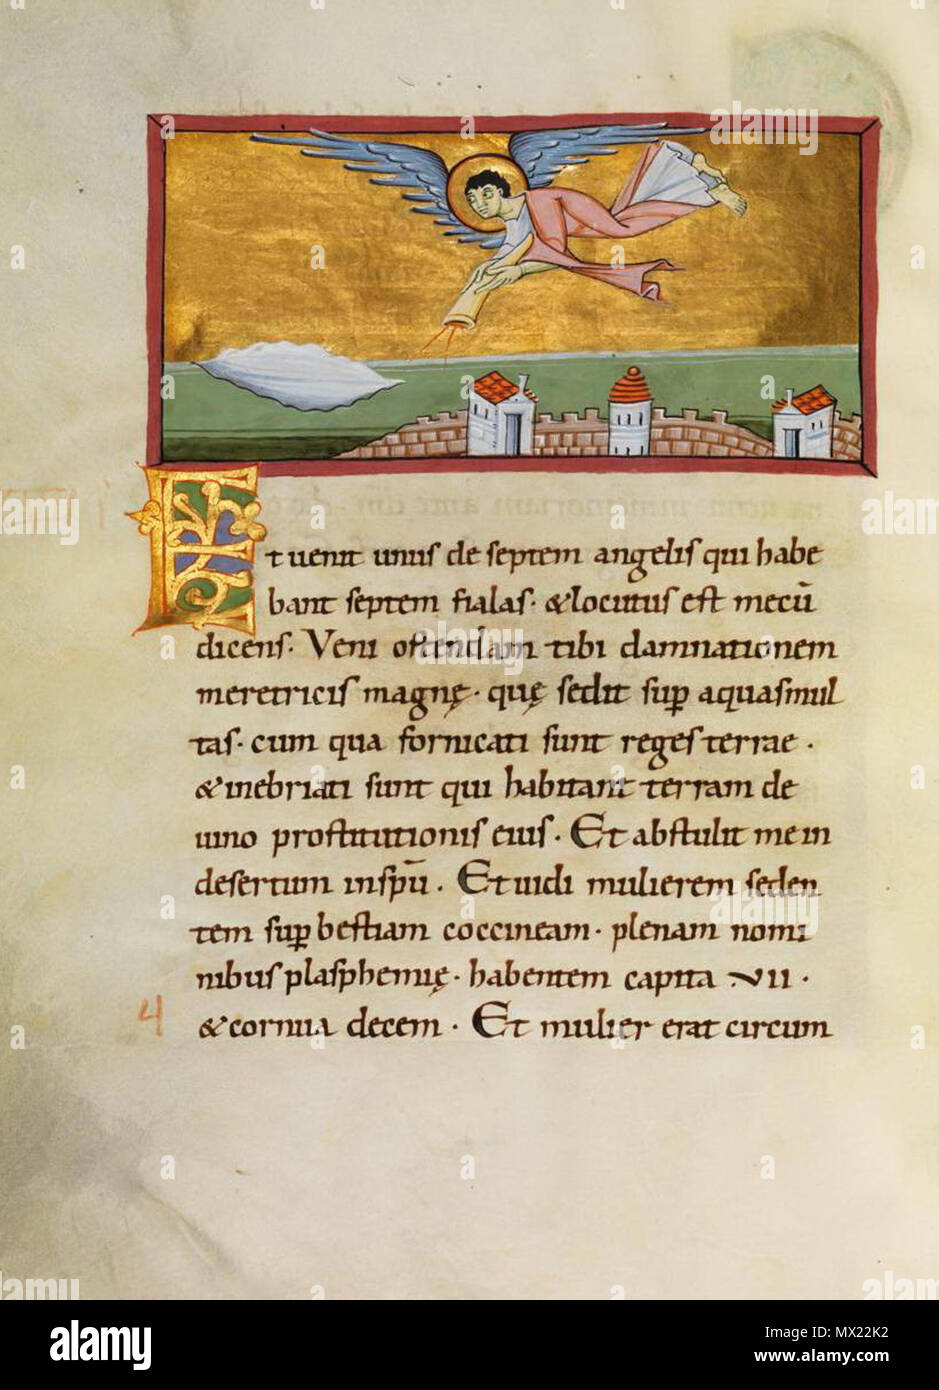 Et uenit unus de septem angelis qui habe
bant septem fialas · & locutus est mecū
dicens · Veni ostendam tibi damnationem
meretricis magnę · quę sedit sup aquas mul
tas · cum qua fornicati sunt reges terrae ·
& inebriati sunt qui habitant terram de
uino prostitutionis eius · Et abstulit me in
desertum in spū · Et uidi mulierem seden
tem sup bestiam coccineam · plenam nomi
nibus plasphemię · habentem capita VII ·
4
& cornua decem · Et mulier erat circum
alamy
Image ID: MX22K2
www.alamy.com